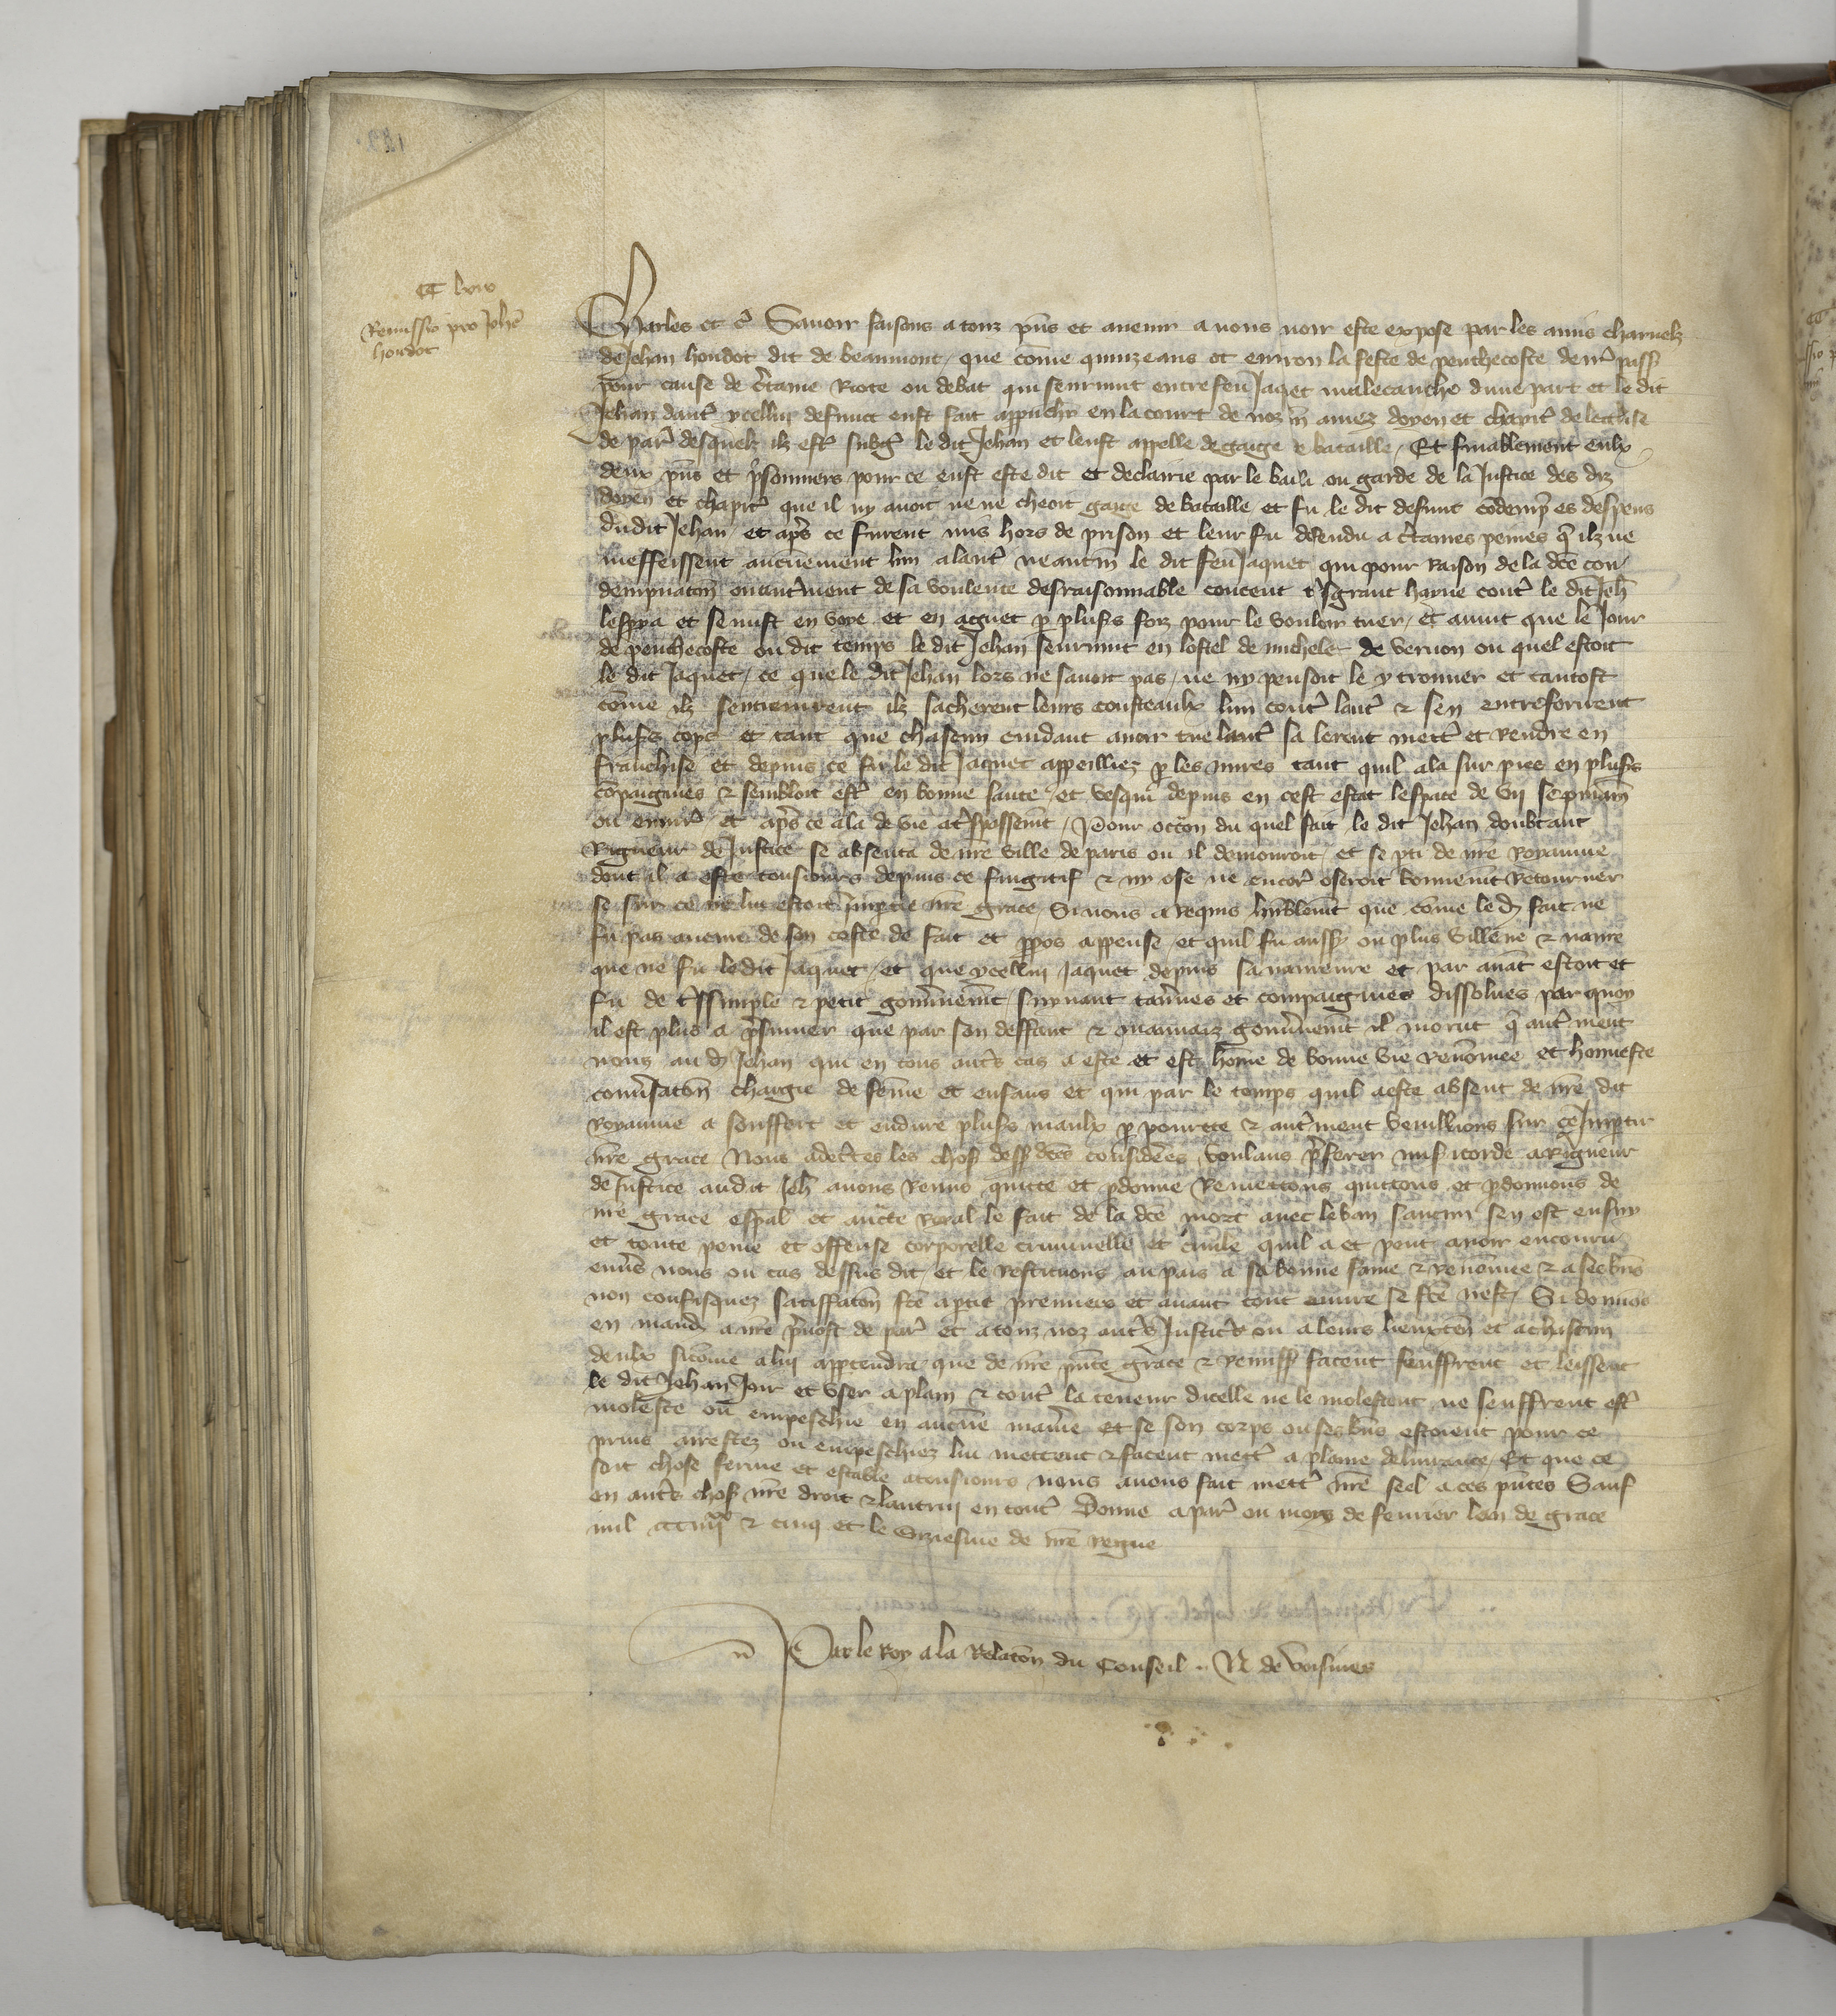 CC lxxv
Remissio pro Johē
houdot
Charles et c̃ Savoir faisons a touz pn̄s et avenir a nous avoir este expose par les amis charnelz
de Jehan houdot dit de beaumont, que cōme quinze ans ot environ la feste de penthecoste denr̄ pass̄
pour cause de c̃taine Riote ou debat qui senrmut entre feu Jaquet malecauche dune part et le dit
Jehan dautr̄ ycellui defunct eust fait app̄uchr̄ en la court de noz bn̄ amez doyen et chapitr̄ de leglise
de par̄ desquelx ilz estr̄ subgr̄ le dit Jehan et leust appelle de gaige de bataille, Et finablement eulx
deux pn̄s et p̄sonniers pour ce eust este dit et declairie par le bailli ou garde de la Justice des diz
doyen et chapitr̄ que il ny avoit ne ne cheoit gaige de bataille et fu le dit defunt cōdemp̄ es despens
du dit Jehan, et ap̄s ce furent mis hors de prison et leur fu defendu a c̃taines peines q̄ ilz ne
meffeissent aucunement lun a lautr̄ neantm̄ le dit feu Jaquet qui pour Raison de la dcē con
dempnatōn ou autr̄ment de sa voulente desraisonnable conceut tr̄sgrant hayne contr̄ le dit Jeh̄
lespya et se mist en voye et en aguet p̄ plus̄s foiz pour le vouloir tuer, Et avint que le Jour
de penthecoste ou dit temps le dit Jehan seurvint en lostel de michelet de vernon ou quel estoit
le dit Jaquet, ce que le dit Jehan lors ne savoit pas, ne ny pensoit le y trouver et tantost
cōme ilz sentrevirent ilz sacherent leurs cousteaulx lun contr̄ lautr̄ & sen entreferirent
plus̄s cops et tant que chascun cuidant avoir tue lautr̄ sa lerent mettr̄ et Rendre en
franchise et depuis ce fu le dit Jaquet appeilliez p̄ les mires tant quil ala sur piez en plus̄s
cōpaignies & sembloit estr̄ en bonne sante, et vesqui depuis en cest estat lespace de vij sepmain̄
ou envir̄, et ap̄s ce ala de vie a tr̄spassem̄t, Pour occōn du quel fait le dit Jehan doubtant
Rigueur de Justice se absenta de nr̄e ville de paris ou il demouroit, et se pti de nr̄e Royaume
dont il a este tousiours depuis ce fuigitif & ny ose ne encor̄ oseroit bonnem̄t Retourner
se sur ce ne lui estoit imp̄tie nr̄e grace, Si nous a requis hu̅blem̄t que cōme le d̄ fait ne
fu pas avenu de son coste de fait et p̄pos appense, et quil fu aussy ou plus villene & navre
que ne fu le dit Jaquet, et que ycellui Jaquet depuis sa navreure et par avāt estoit et
fu de tr̄ssimple & petit gouv̄nem̄t suyvant tav̄nes et compaignies dissolues par quoy
il est plus a p̄sumer que par son deffaut & mauvaiz gouv̄nem̄t il morut q̄ autr̄ment
nous au d̄ Jehan qui en tous autr̄s cas a este et est hōme de bonne vie renōmee et honneste
conv̄satōn chargie de fēme et enfans et qui par le temps quil a este absent de nr̄e dit
Royaume a souffert et endure plus̄s maulx p̄ pourete & autr̄ment veuillions sur ce Imp̄tir
nr̄e grace Nous adec̄tes les chos̄ dess̄ dcēs considēes, voulans p̄ferer mis̄icorde a Rigueur
de Justice au dit Jeh̄ avons Remis quitte et p̄donne Remettons quittons et p̄donnons de
nr̄e grace esp̄al et aucte Royal le fait de la dcē mort avec le ban saucun sen est ensuy
et toute peine et offense corporelle criminelle et civile quil a et peut avoir encouru
env̄s nous ou cas dessus dit, et le restituons au pais a sa bonne fame & renōmee & a ses bn̄s
non confisquez satiffatōn fcē a ptie premiers et avant tout euvre se fcē nest, Si donnons
en mand̄ a nr̄e p̄vost de par̄ et a touz noz autr̄s Justicr̄s ou a leurs lieuxten̄ et a chascun
deulx sicōme a lui app̄tendra, que de nr̄e pn̄te grace & remiss̄ facent seuffrent et leissent
le dit Jehan Joir et user a plain & contr̄ la teneur dicelle ne le molestent ne seuffrent estr̄
moleste ou empeschie en aucune manie̅ et se son corps ou ses bn̄s estoient pour ce
prins arrestez ou empeschiez lui mettent & facent mettr̄ a plaine delivrance Et que ce
soit chose ferme et estable a tousiours nous avons fait mettr̄ nr̄e seel a ces pn̄tes Sauf
en autr̄s chos̄ nr̄e droit & lautrui en toutr̄ Donne a par̄ ou moys de fevrier lan de grace
mil CCC iiijxx & cinq et le siziesme de nr̄e regne
Par le Roy a la Relatōn du Conseil .. N de voisines